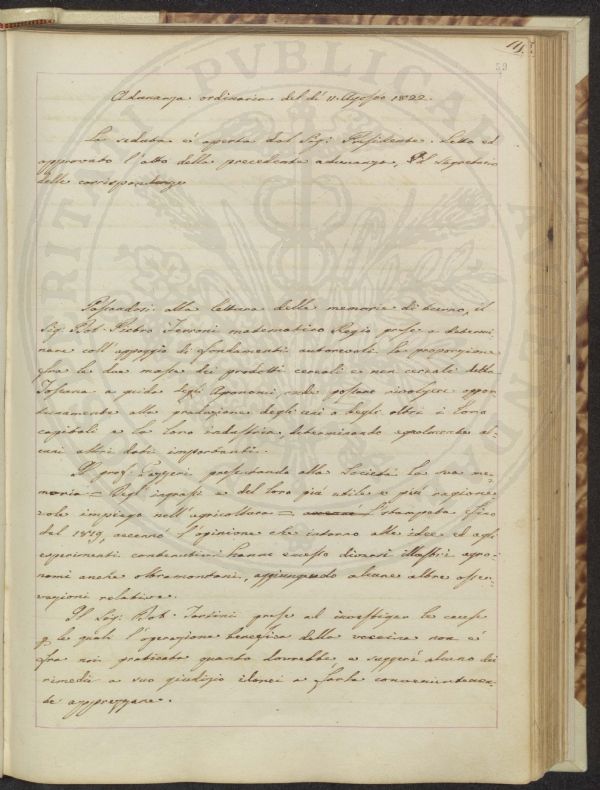 59
Adunanza ordinaria del dì 11. Agosto 1822.
La seduta è aperta dal Sig: Presidente. Letto ed
approvato l'atto della precedente adunanza, Il Segretario
delle corrispondenze
Passandosi alla lettura delle memorie di turno, il
Sig: Dot: Pietro matematico Regio prese a determi-
nare coll'appoggio di fondamenti autorevoli la proporzione
fra le due masse dei prodotti cereali e non cereali della
Toscana a guida degli Agronomi, onde possano rivolgere oppor-
tunamente alla produzione degli uni o degli altri i loro
capitali e la loro industria, determinando egualmente al-
cuni altri dati importanti.
Il prof: Gazzeri presentando alla Società la sua me-
moria = Degl'ingrassi e del loro più utile e più ragione-
vole impiego nell'agricoltura = stampata fino
del 1819, accennò l'opinione che intorno alle idee ed agli
esperimenti contenutivi hanno emesso diversi illustri agro-
nomi anche oltramontani, aggiungendo alcune altre osser-
vazioni relative.
Il Sig: Dot: prese ad investigar le cause
p. le quali l'operazione benefica della vaccina non è
fra noi praticata quanto dovrebbe, e suggerì alcuno dei
rimedi a suo giudizio idonei a farla convenientemen-
te apprezzare.
PVBLICAE